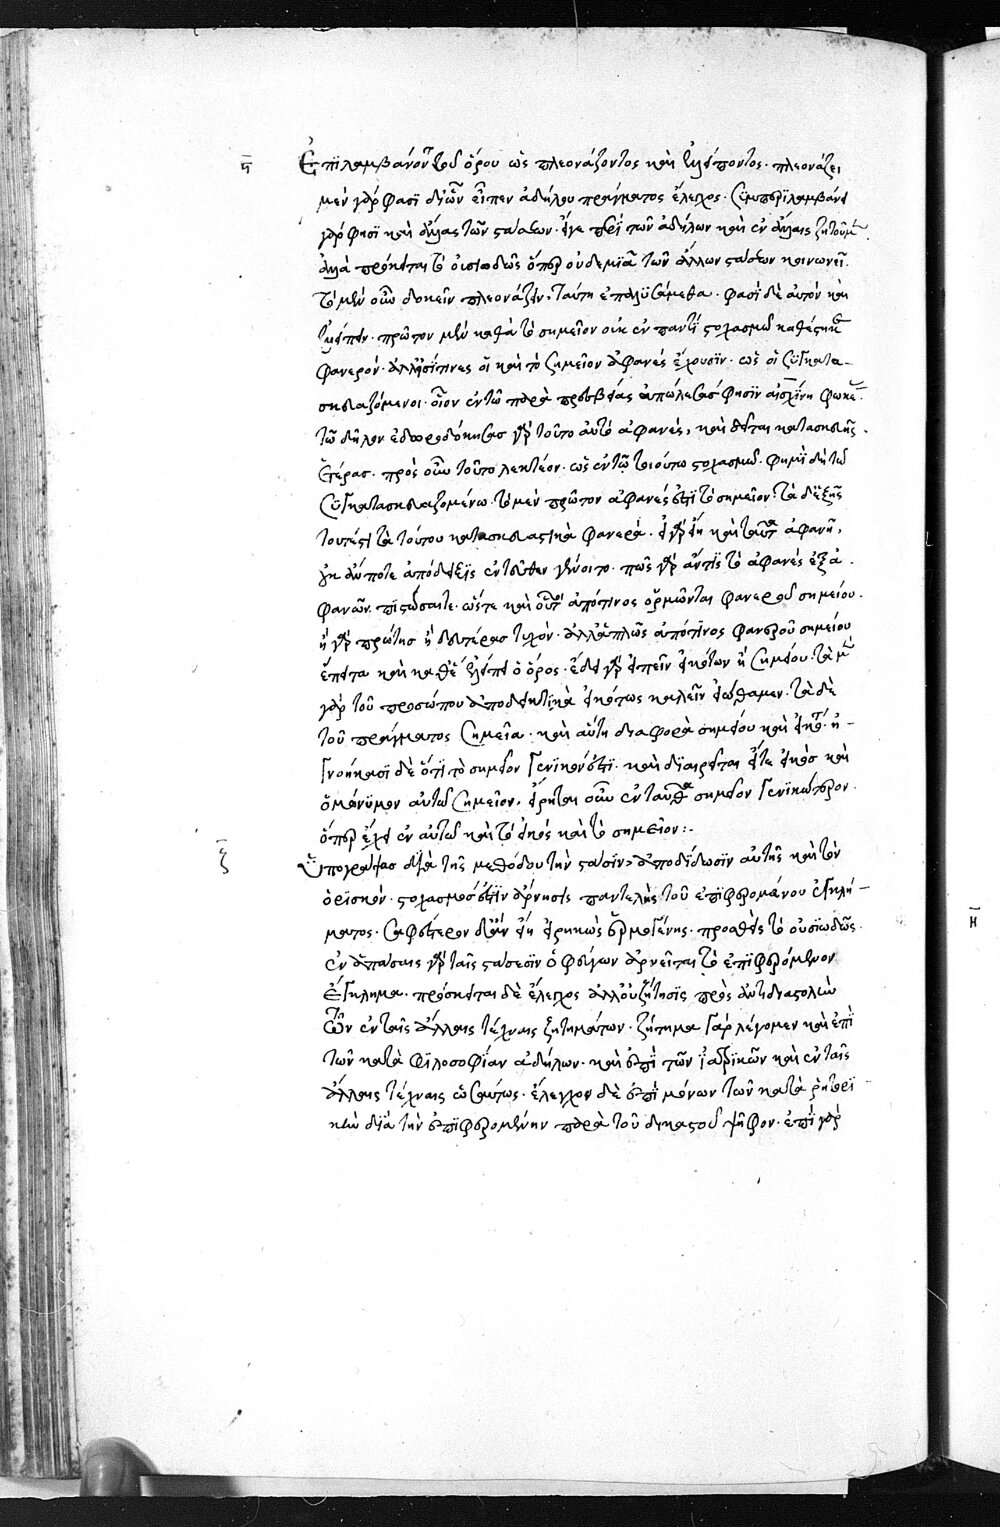 Ἐπιλαμβάνονται τοῦ ὅρου ὡς πλεονάζοντος καὶ ἐλλείποντος· πλεονάζει
μὲν γάρ φασι δι' ὧν εἶπεν ἀδήλου πράγματος ἔλεγχος· συμπεριλαμβάνει
γάρ φησι καὶ ἄλλας τῶν στάσεων· εἴγε περὶ τῶν ἀδήλων καὶ ἐν ἄλλαις ζητοῦμεν.
ἀλλὰ πρόκειται τὸ οὐσιωδῶς ὅπερ οὐδεμία τῶν ἄλλων στάσεων κοινωνεῖ.
τὸ μὲν οὖν δοκεῖν πλεονάζειν, ταύτῃ ἐπελυσάμεθα. φασὶ δὲ αὐτὸν καὶ
ἐλλείπειν· πρῶτον μὲν καθὰ τὸ σημεῖον οὐκ ἐν παντὶ στοχασμῷ καθέστηκε
φανερόν· ἀλλ' εἰσί τινες οἳ καὶ τὸ σημεῖον ἀφανὲς ἔχουσιν· ὡς οἱ συγκατα-
σκευαζόμενοι· οἷον ἐν τῷ παρὰ πρεσβείας ἀπώλεσας φησὶν αἰσχίνη φωκεῖς.
τῷ δῆλον ἐδωροδόκησας γὰρ τοῦτο αὐτὸ ἀφανές, καὶ δεῖται κατασκευῆς
ἑτέρας. πρὸς οὖν τοῦτο λεκτέον· ὡς ἐν τῷ τοιούτῳ στοχασμῷ. φημὶ δὴ τῷ
συγκατασκευαζομένῳ· τὸ μὲν πρῶτον ἀφανές ἐστι τὸ σημεῖον· τὰ δ' ἑξῆς
τουτέστι τὰ τούτου κατασκευαστικὰ φανερά. εἰ γὰρ εἴη καὶ ταῦτα ἀφανῆ,
δήποτε ἀπόδειξις ἐντεῦθεν γένοιτο· πῶς γὰρ ἄν τις τὸ ἀφανὲς ἐξ ἀ-
φανῶν πιστώσαιτο· ὥστε καὶ οὗτοι ἀπό τινος ὁρμῶνται φανεροῦ σημείου.
ἢ γὰρ πρώτης ἢ δευτέρας τυχόν· ἀλλ' ἁπλῶς ἀπό τινος φανεροῦ σημείου
ἔπειτα καὶ καθὸ ἐλλείπει ὁ ὅρος· ἔδει γὰρ εἰπεῖν εἰκότων ἢ σημείου· τὰ μὲν
γὰρ τοῦ προσώπου ἀποδεικτικὰ εἰκότως καλεῖν εἰώθαμεν. τὰ δὲ
τοῦ πράγματος σημεῖα· καὶ αὕτη διαφορὰ σημείου καὶ εἰκότος· ἠ-
γνοήκασι δὲ ὅτι τὸ σημεῖον γενικόν ἐστι· καὶ διαιρεῖται εἴς τε εἰκὸς καὶ
ὁμώνυμον αὐτῷ σημεῖον, εἴρηται οὖν ἐνταῦθα σημεῖον γενικώτερον.
ὅπερ ἔχει ἐν αὑτῷ καὶ τὸ εἰκὸς καὶ τὸ σημεῖον:-
Ὑπογράψας διὰ τῆς μεθόδου τὴν στάσιν, ἀποδίδωσιν αὐτῆς καὶ τὸν
ὁρισμόν· στοχασμός ἐστιν ἄρνησις παντελὴς τοῦ ἐπιφερομένου ἐγκλή-
ματος· σαφέστερον δ' ἂν εἴη εἰρηκὼς ἑρμογένης· προσθεὶς τὸ οὐσιωδῶς.
ἐν ἁπάσαις γὰρ ταῖς στάσεσιν ὁ φεύγων ἀρνεῖται τὸ ἐπιφερόμενον
ἔγκλημα. πρόσκειται δὲ ἔλεγχος ἀλλ' οὐ ζήτησις πρὸς ἀντιδιαστολὴν
τῶν ἐν ταῖς ἄλλαις τέχναις ζητημάτων· ζήτημα γὰρ λέγομεν καὶ ἐπὶ
τῶν κατὰ φιλοσοφίαν ἀδήλων· καὶ ἐπὶ τῶν ἰατρικῶν καὶ ἐν ταῖς
ἄλλαις τέχναις ὡσαύτως· ἔλεγχον δὲ ἐπὶ μόνων τῶν κατὰ ῥητορι
κὴν διὰ τὴν ἐπιφερομένην παρὰ τοῦ δικαστοῦ ψῆφον· ἐπεὶ γὰρ